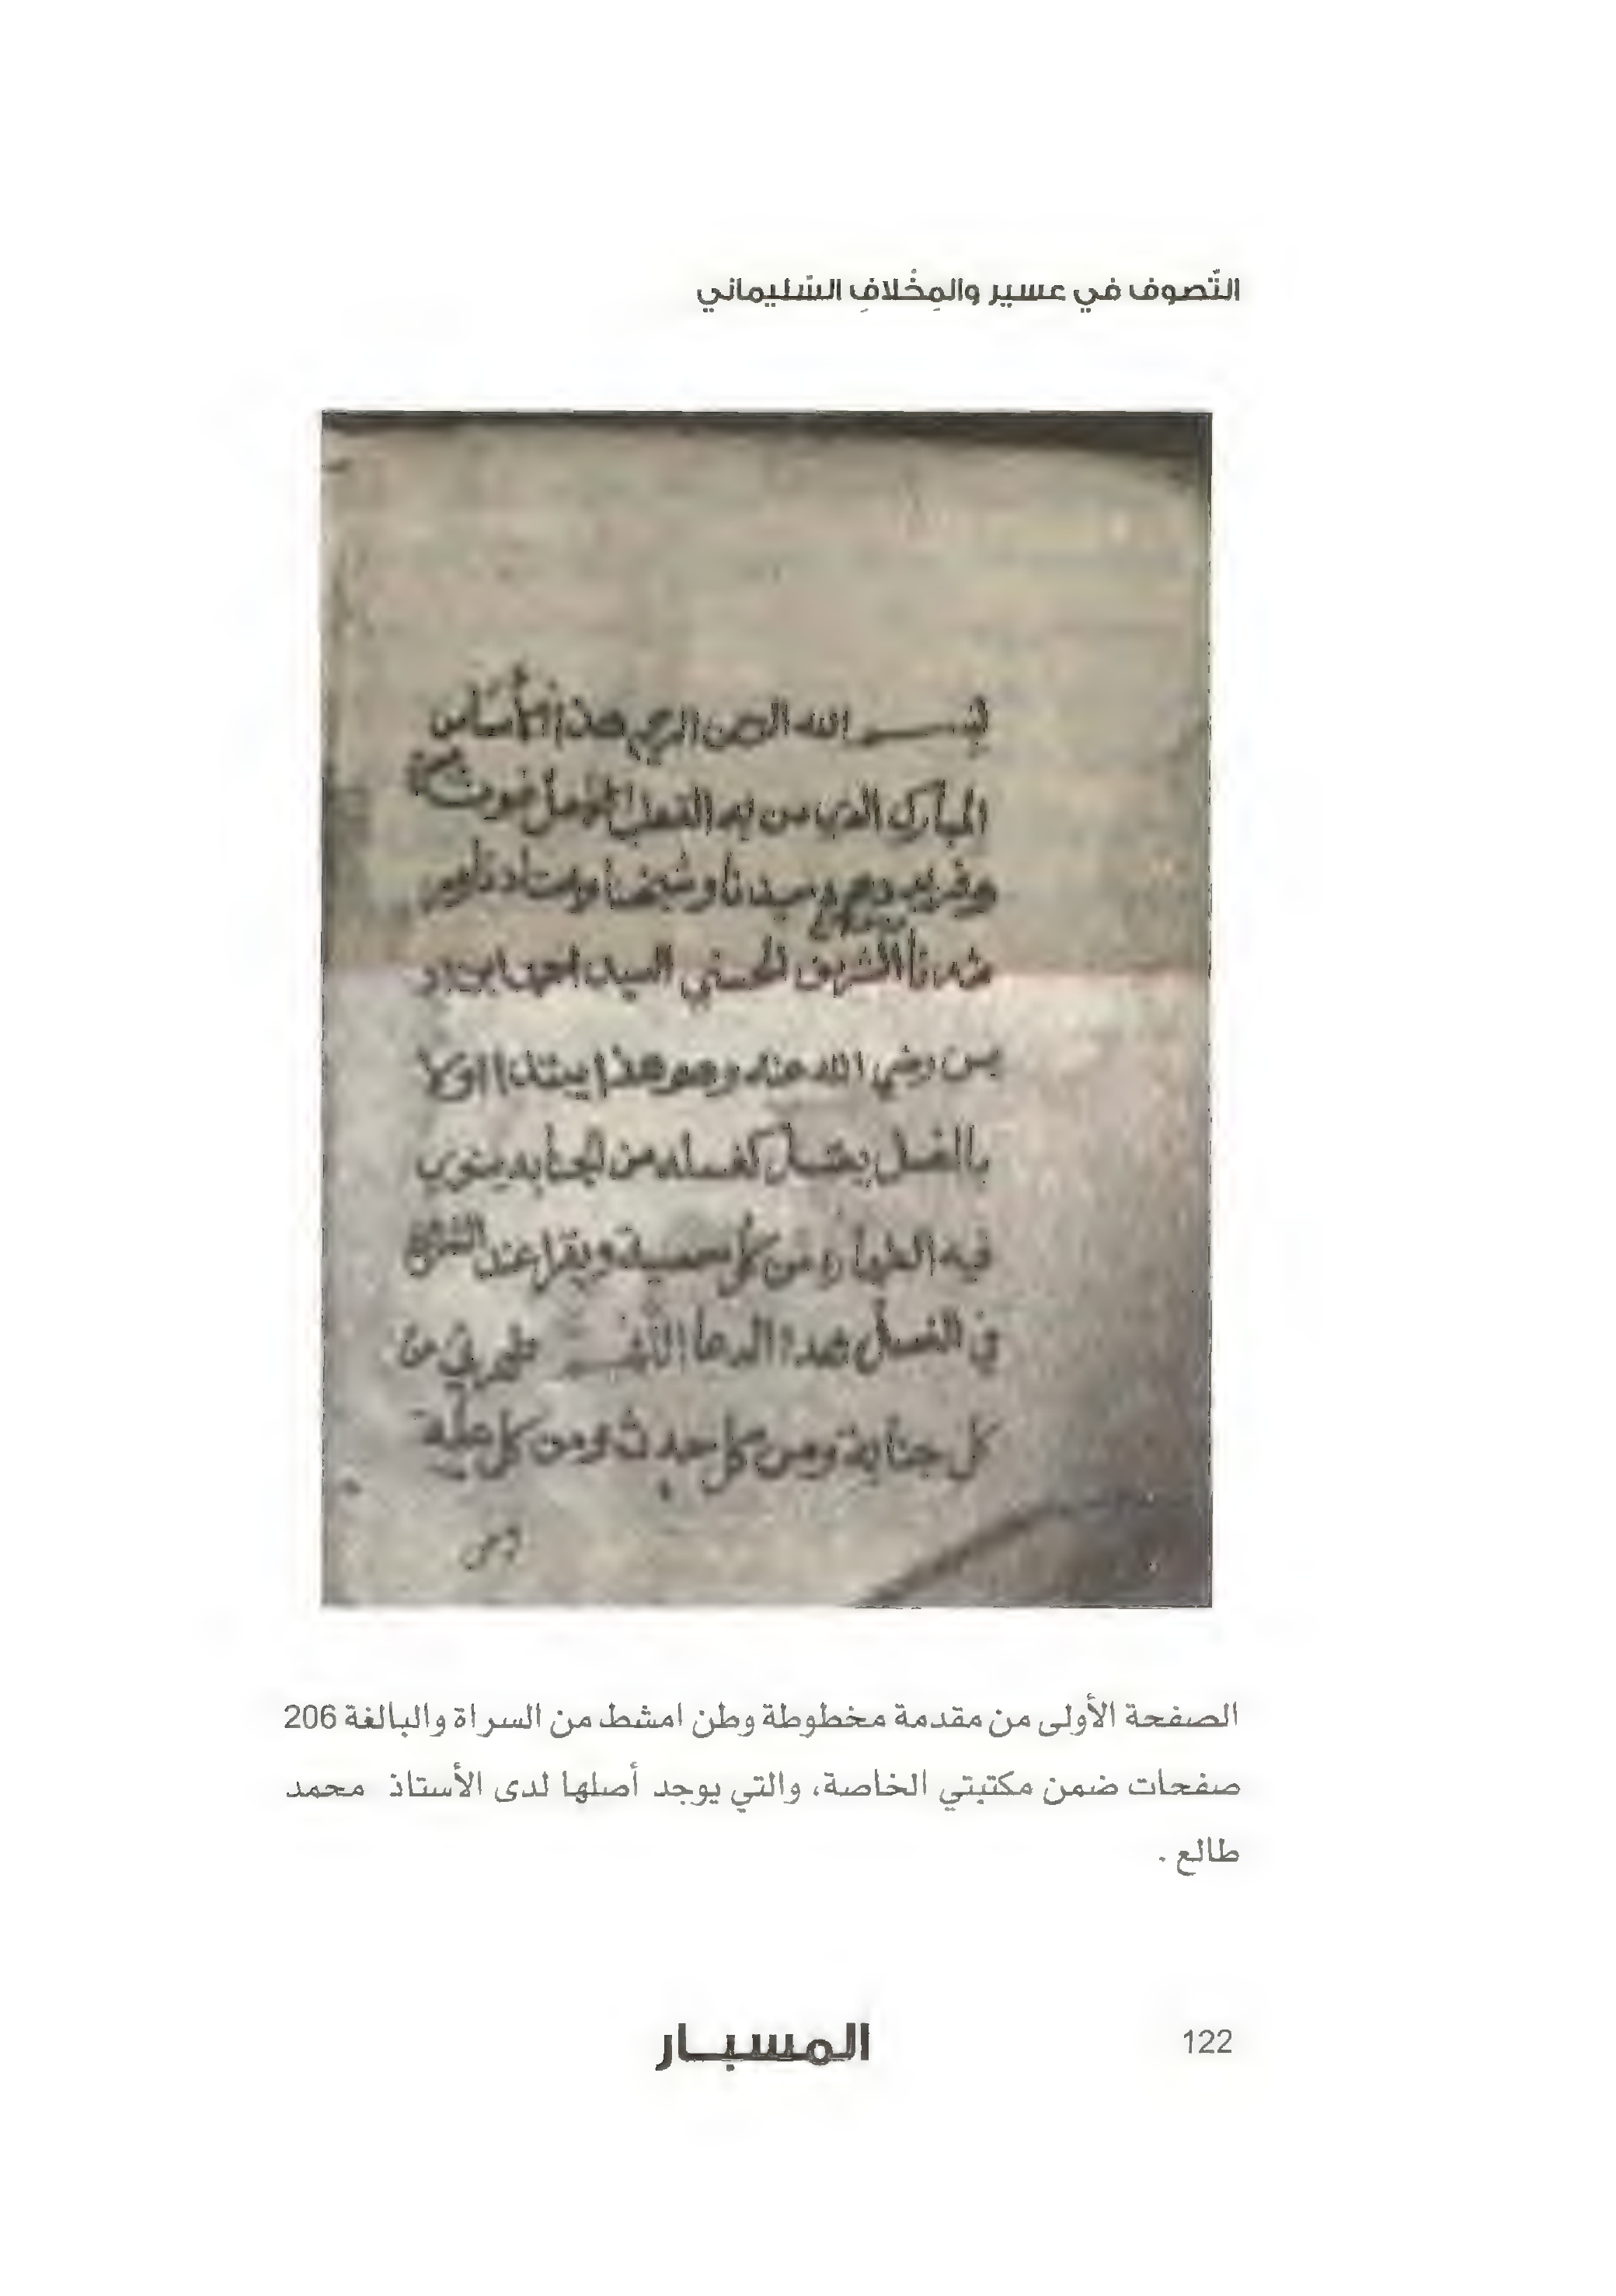 التّصوف في عسير والمِخْلافِ السّليماني
بسم الله الرحمن الرحيم هذا الأساس
المبارك الذي من به القطب
وسيدنا وشيخنا واستاذنا ومر
شدنا الشريف الحسني السيد احمد ابن ادر
يس رضي الله عنه وهو هذا يبتدا اولا
بالغسل يغتسل كغسله من الجنابه ينوي
فيه الطهاره من كل معصية ويقرا عند
في الغسل بهذا الدعا اللهم طهرني من
كل جنابة ومن كل حدث ومن كل علة
ومن
الصفحة الأولى من مقدمة مخطوطة وطن امشط من السراة والبالغة 206
صفحات ضمن مكتبتي الخاصة، والتي يوجد أصلها لدى الأستاذ محمد
طالع .
المسبار
122